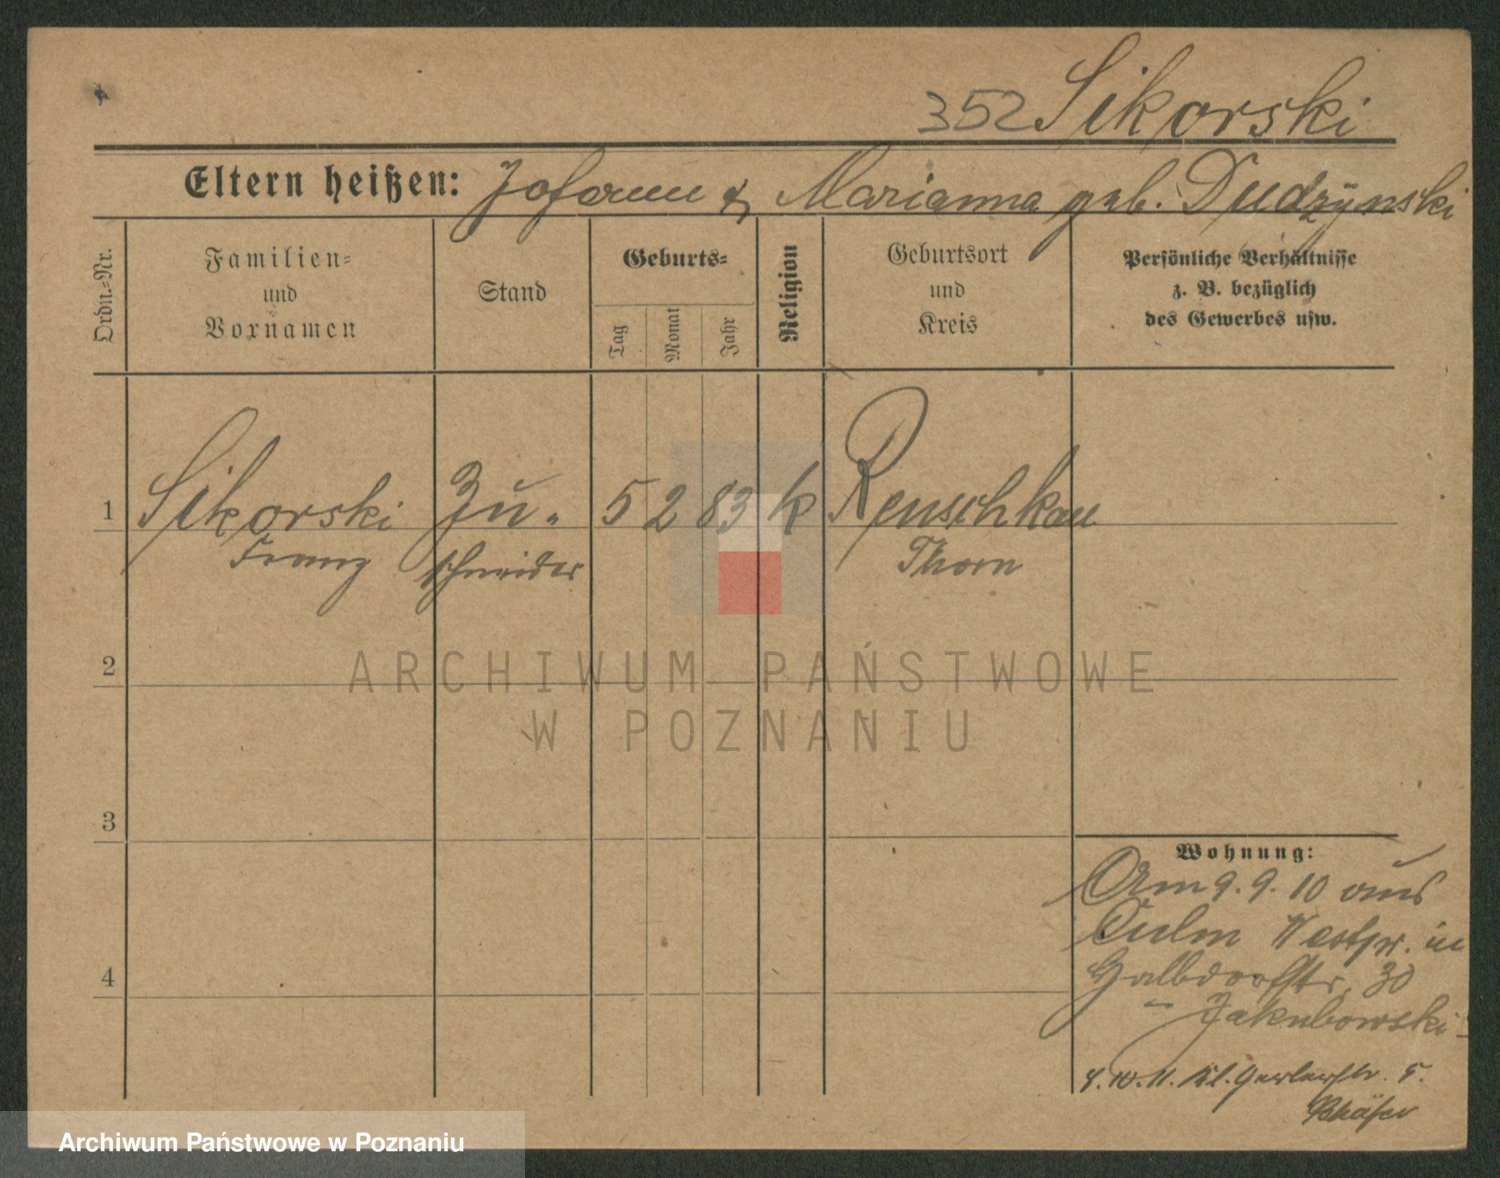 352 Sikorski
Eltern heißen: Johann & Marianna geb. Dudzynski
Ordn.-Nr.
Familien-
und
Vornamen
Stand
Geburts-
Tag
Monat
Jahr
Religion
Geburtsort
und
Kreis
Persönliche Verhältnisse
z. B. bezüglich
des Gewerbes usw.
1 Sikorski Zu- 5 2 83 k Renschkau
Franz schneider Thorn
2
ARCHIWUM PAŃSTWOWE
W POZNANIU
3
Wohnung:
Am 9. 9. 10 aus
Culm Westpr. in
4
Halbdorfstr. 30
Jakubowski
4. 10. 11. Kl. Gerberstr. 5.
Archiwum Państwowe w Poznaniu